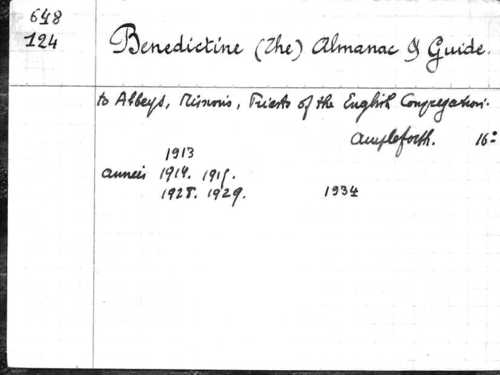 648
124
Benedictine (The) Almanac & Guide.
to Abbeys, Missions, Priests of the English Congregation.
Ampleforth. 16º
1913
années 1914. 1915.
1928. 1929. 1934